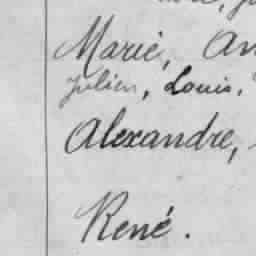 Marie, An
Julien, Louis,
Alexandre,
René.